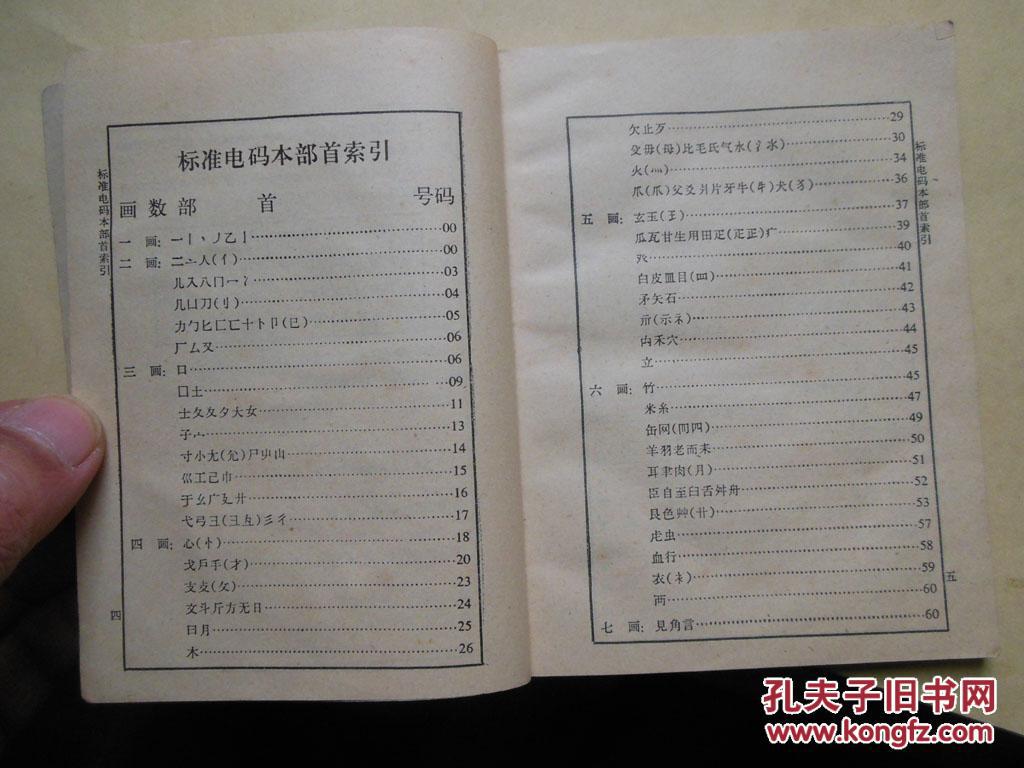 标准电码本部首索引
标准电码本部首索引
画数 部 首 号码
一 画: 一丨丶丿乙亅 00
二 画: 二亠人(亻) 00
儿入八冂冖冫 03
几凵刀(刂) 04
力勹匕匚匸十卜卩(㔾) 05
厂厶又 06
三 画: 口 06
囗土 09
士夂夊夕大女 11
子宀 13
寸小尢(尣)尸屮山 14
巛工己巾 15
干幺广廴廾 16
弋弓彐(彑)彡彳 17
四 画: 心(忄) 18
戈戶手(才) 20
支攴(攵) 23
文斗斤方无日 24
曰月 25
木 26
四
欠止歹 29
殳毋(母)比毛氏气水(氵氺) 30
火(灬) 34
爪(爫)父爻爿片牙牛(牜)犬(犭) 36
五 画: 玄玉(王) 37
瓜瓦甘生用田疋(疋)疒 39
癶 40
白皮皿目(罒) 41
矛矢石 42
示(示礻) 43
禸禾穴 44
立 45
六 画: 竹 45
米糸 47
缶网(罒) 49
羊羽老而耒 50
耳聿肉(月) 51
臣自至臼舌舛舟 52
艮色艸(艹) 53
虍虫 57
血行 58
衣(衤) 59
襾 60
七 画: 見角言 60
标准电码本部首索引
五
孔夫子旧书网
www.kongfz.com